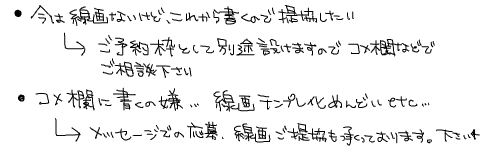 • 今は線画ないけど、これから書くので提協したい
↳ ご予約枠として別途設けますのでコメ欄などで
ご相談下さい
• コメ欄に書くの嫌… 線画テンプレ化めんどいetc…
↳ メッセージでの応募、線画ご提協も承っております。下さい